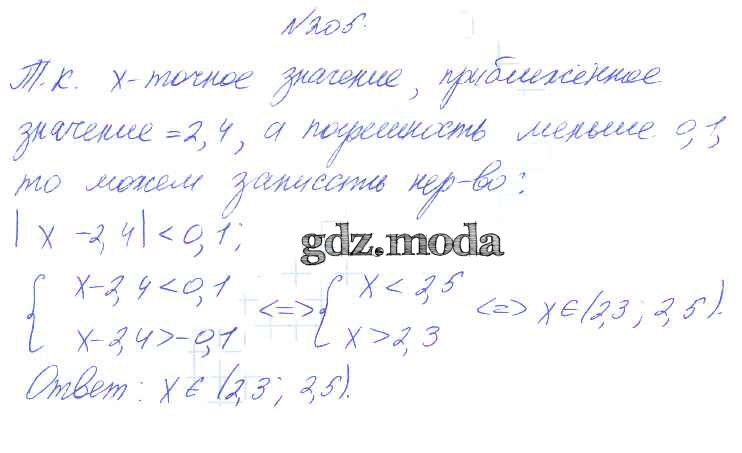 №205.
Т.к. х-точное значение, приближённое
значение=2,4, а погрешность меньше 0,1,
то можем записать нер-во:
|x-2,4|<0,1;
gdz.moda
{ x-2,4<0,1 <=> { x<2,5 <=> x∈(2,3; 2,5).
x-2,4>-0,1 x>2,3
Ответ: x∈(2,3; 2,5).